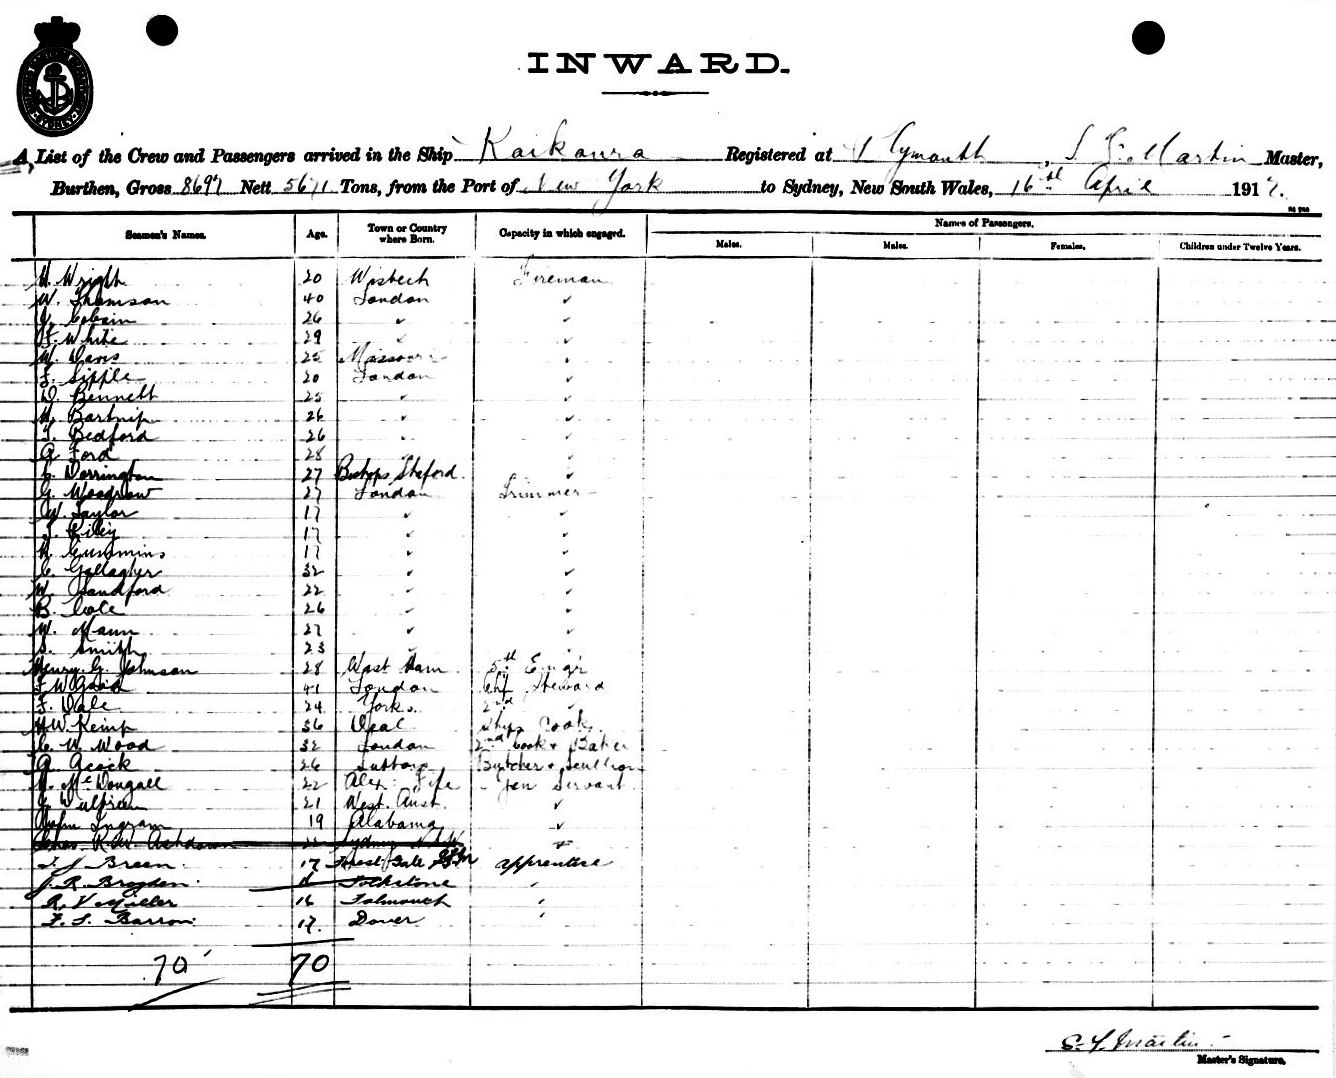 INWARD.
A List of the Crew and Passengers arrived in the Ship Kaikoura Registered at Plymouth, Martin Master,
Burthen, Gross 8697 Nett Tons, from the Port of New York to Sydney, New South Wales, 16 April 1917.
Seamen's Names. Age. Town or Country where Born. Capacity in which engaged. Names of Passengers.
Males. Males. Females. Children under Twelve Years.
H. Wright 20 Wisbech Fireman
W. Thomson 40 London ✓
26 ✓ ✓
F. White 29 ✓ ✓
W. Davis 25 Missouri ✓
F. Sipple 20 London ✓
D. Bennett 25 ✓ ✓
H. Bartrip 26 ✓ ✓
T. Bedford 26 ✓ ✓
A Ford 28 ✓ ✓
C. Dorrington 27 Bishops Stoford ✓
G. Woodrow 27 London Trimmer
W. Taylor 17 ✓ ✓
J. Riley 17 ✓ ✓
H. Cummins 17 ✓ ✓
C. Gallagher 32 ✓ ✓
W. Sandford 22 ✓ ✓
B. Cole 26 ✓ ✓
W. Mann 27 ✓ ✓
S. Smith 23 ✓ ✓
Henry G. Johnson 28 West Ham 5th Eng'r
F W 41 London Chf Steward
F. Dale 24 Yorks. 2nd ✓
H W. Kemp 36 Deal Ships Cook
C. W. Wood 32 London 2nd Cook & Baker
A. Acock 26 Sutton Butcher & Scullion
H. McDougall 22 Fife Gen Servant
21 West. Aust. ✓
John Ingram 19 Alabama ✓
Chas R. W. Ashdown 22 Sydney N.S.W. ✓
T J Breen. 17 Forest Gate apprentice
J. R. Brogden. Folkstone "
R. V Miller 16 Falmouth "
F. S. Barron. 17. Dover "
70 70
Martin
Master's Signature.